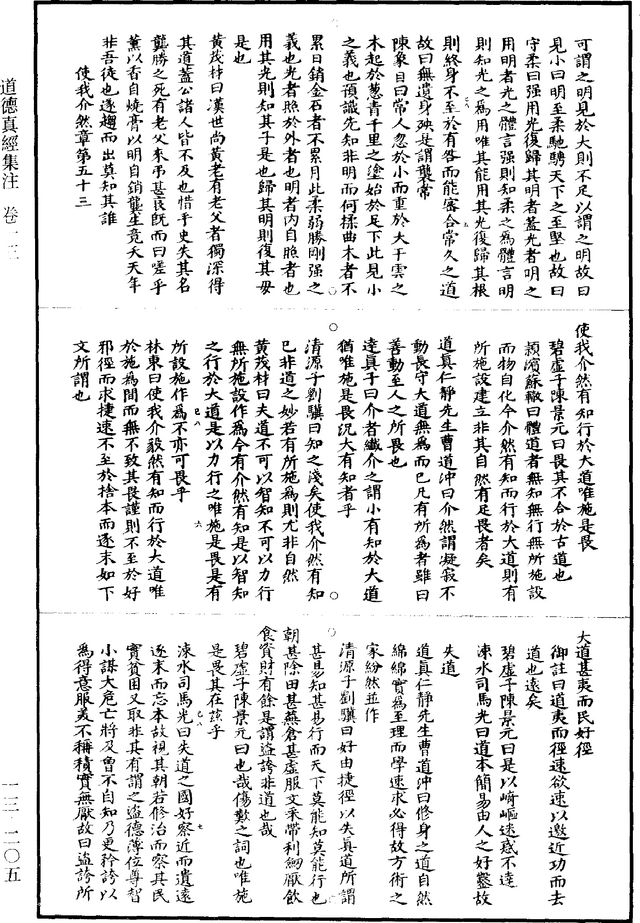 可謂之明見於大則不足以謂之明故曰
見小曰明至柔馳騁天下之至堅也故曰
守柔曰强用光復歸其明者蓋光者明之
用明者光之體言强則知柔之為體言明
則知光之為用唯其能用其光復歸其根
則終身不至於有咎而能審合常久之道
故曰無遺身殃是謂襲常
陳象目曰常人忽於小而重於大干雲之
木起於葱青千里之塗始於足下此見小
之義也預識先知非明而何揉曲木者不
累日銷金石者不累月此柔弱勝剛强之
義也光者照於外者也明者内自照者也
用其光則知其子是也歸其明則復其母
是也
黄茂材曰漢世尚黄老有老父者獨深得
其道蓋公諸人皆不及也惜乎史失其名
龔勝之死有老父來弔甚哀旣而曰嗟乎
薰以香自燒膏以明自銷龔生竟夭天年
非吾徒也遂趨而出莫知其誰
使我介然章第五十三
使我介然有知行於大道唯施是畏
碧虚子陳景元曰畏其不合於古道也
頴濱蘇轍曰體道者無知無行無所施設
而物自化今介然有知而行於大道則有
所施設建立非其自然有足畏者矣
道真仁靜先生曹道沖曰介然謂凝寂不
動長守大道無為而已凡有所為者雖曰
善動至人之所畏也
達真子曰介者纎介之謂小有知於大道
猶唯施是畏況大有知者乎
清源子劉驥曰知之淺矣使我介然有知
已非道之妙若有所施為則尤非自然
黄茂材曰夫道不可以智知不可以力行
無所施設作為今有介然有知是以智知
之行於大道是以力行之唯施是畏是有
所設施作為不亦可畏乎
林東曰使我介毅然有知而行於大道唯
於施為間而無不致其畏謹則不至於好
邪徑而求捷速不至於捨本而逐末如下
文所謂也
大道甚夷而民好徑
御註曰道夷而徑速欲速以邀近功而去
道也遠矣
碧虚子陳景元曰是以崎嶇迷惑不達
涑水司馬光曰道本簡易由人之好鑿故
失道
道真仁靜先生曹道沖曰修身之道自然
綿綿實為至理而學速求必得故方術之
家紛然並作
清源子劉驥曰好由捷徑以失真道所謂
甚易知甚易行而天下莫能知莫能行也
朝甚除田甚蕪倉甚虚服文采帶利劒厭飲
食資財有餘是謂盗誇非道也哉
碧虚子陳景元曰也哉傷歎之詞也唯施
是畏其在該乎
涑水司馬光曰失道之國好察近而遺遠
逐末而忘本故視其朝若修治而察其民
實貧困又取非其有謂之盗德薄位尊智
小謀大危亡將及曾不自知乃更矜誇以
為得意服美不稱積實無厭故曰盗誇所
道德真經集注 卷一三
一三·二〇五